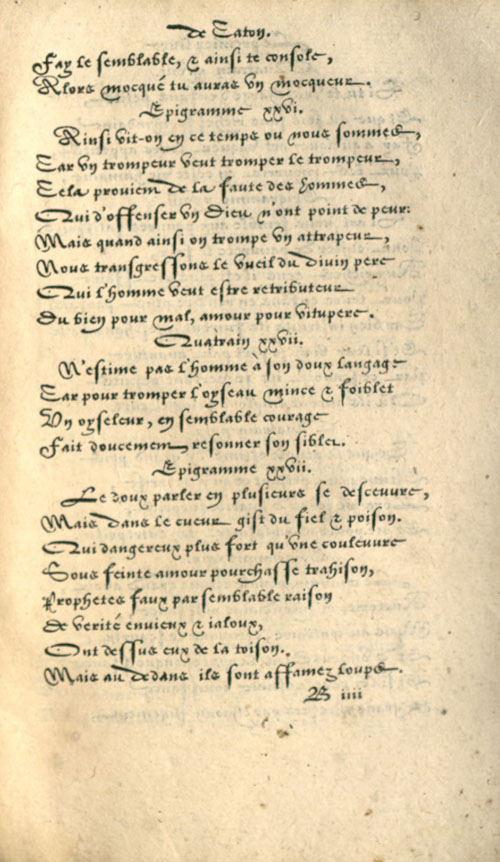 de Caton.
Fay le semblable, & ainsi te console,
Alors mocqué tu auras vn mocqueur.
Epigramme xxvi.
Ainsi vit-on en ce temps ou nous sommes,
Car vn trompeur veut tromper le trompeur,
Cela provient de la faute des hommes,
Qui d'offenser vn Dieu n'ont point de peur:
Mais quand ainsi on trompe vn attrapeur,
Nous transgressons le vueil du divin pere
Qui l'homme veut estre retributeur
Du bien pour mal, amour pour vitupere.
Quatrain xxvii.
N'estime pas l'homme à son doux langage
Car pour tromper l'oyseau mince & foiblet
Vn oyseleur, en semblable courage
Fait doucement resonner son siblet.
Epigramme xxvii.
Le doux parler en plusieurs se desceuvre,
Mais dans le cueur gist du fiel & poison.
Qui dangereux plus fort qu'vne couleuvre
Sous feinte amour pourchasse trahison,
Prophetes faux par semblable raison
De verité envieux & ialoux,
Ont dessus eux de la toison.
Mais au dedans ils sont affamez loups.
B iiii